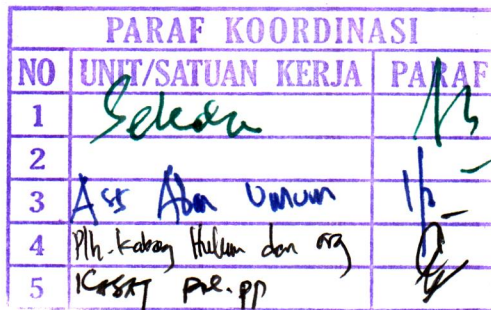 PARAF KOORDINASI
NO UNIT/SATUAN KERJA PARAF
1 Sekda
2
3 Ass Adm Umum
4 Plh. Kabag Hukum dan org
5 KASAT pol. pp